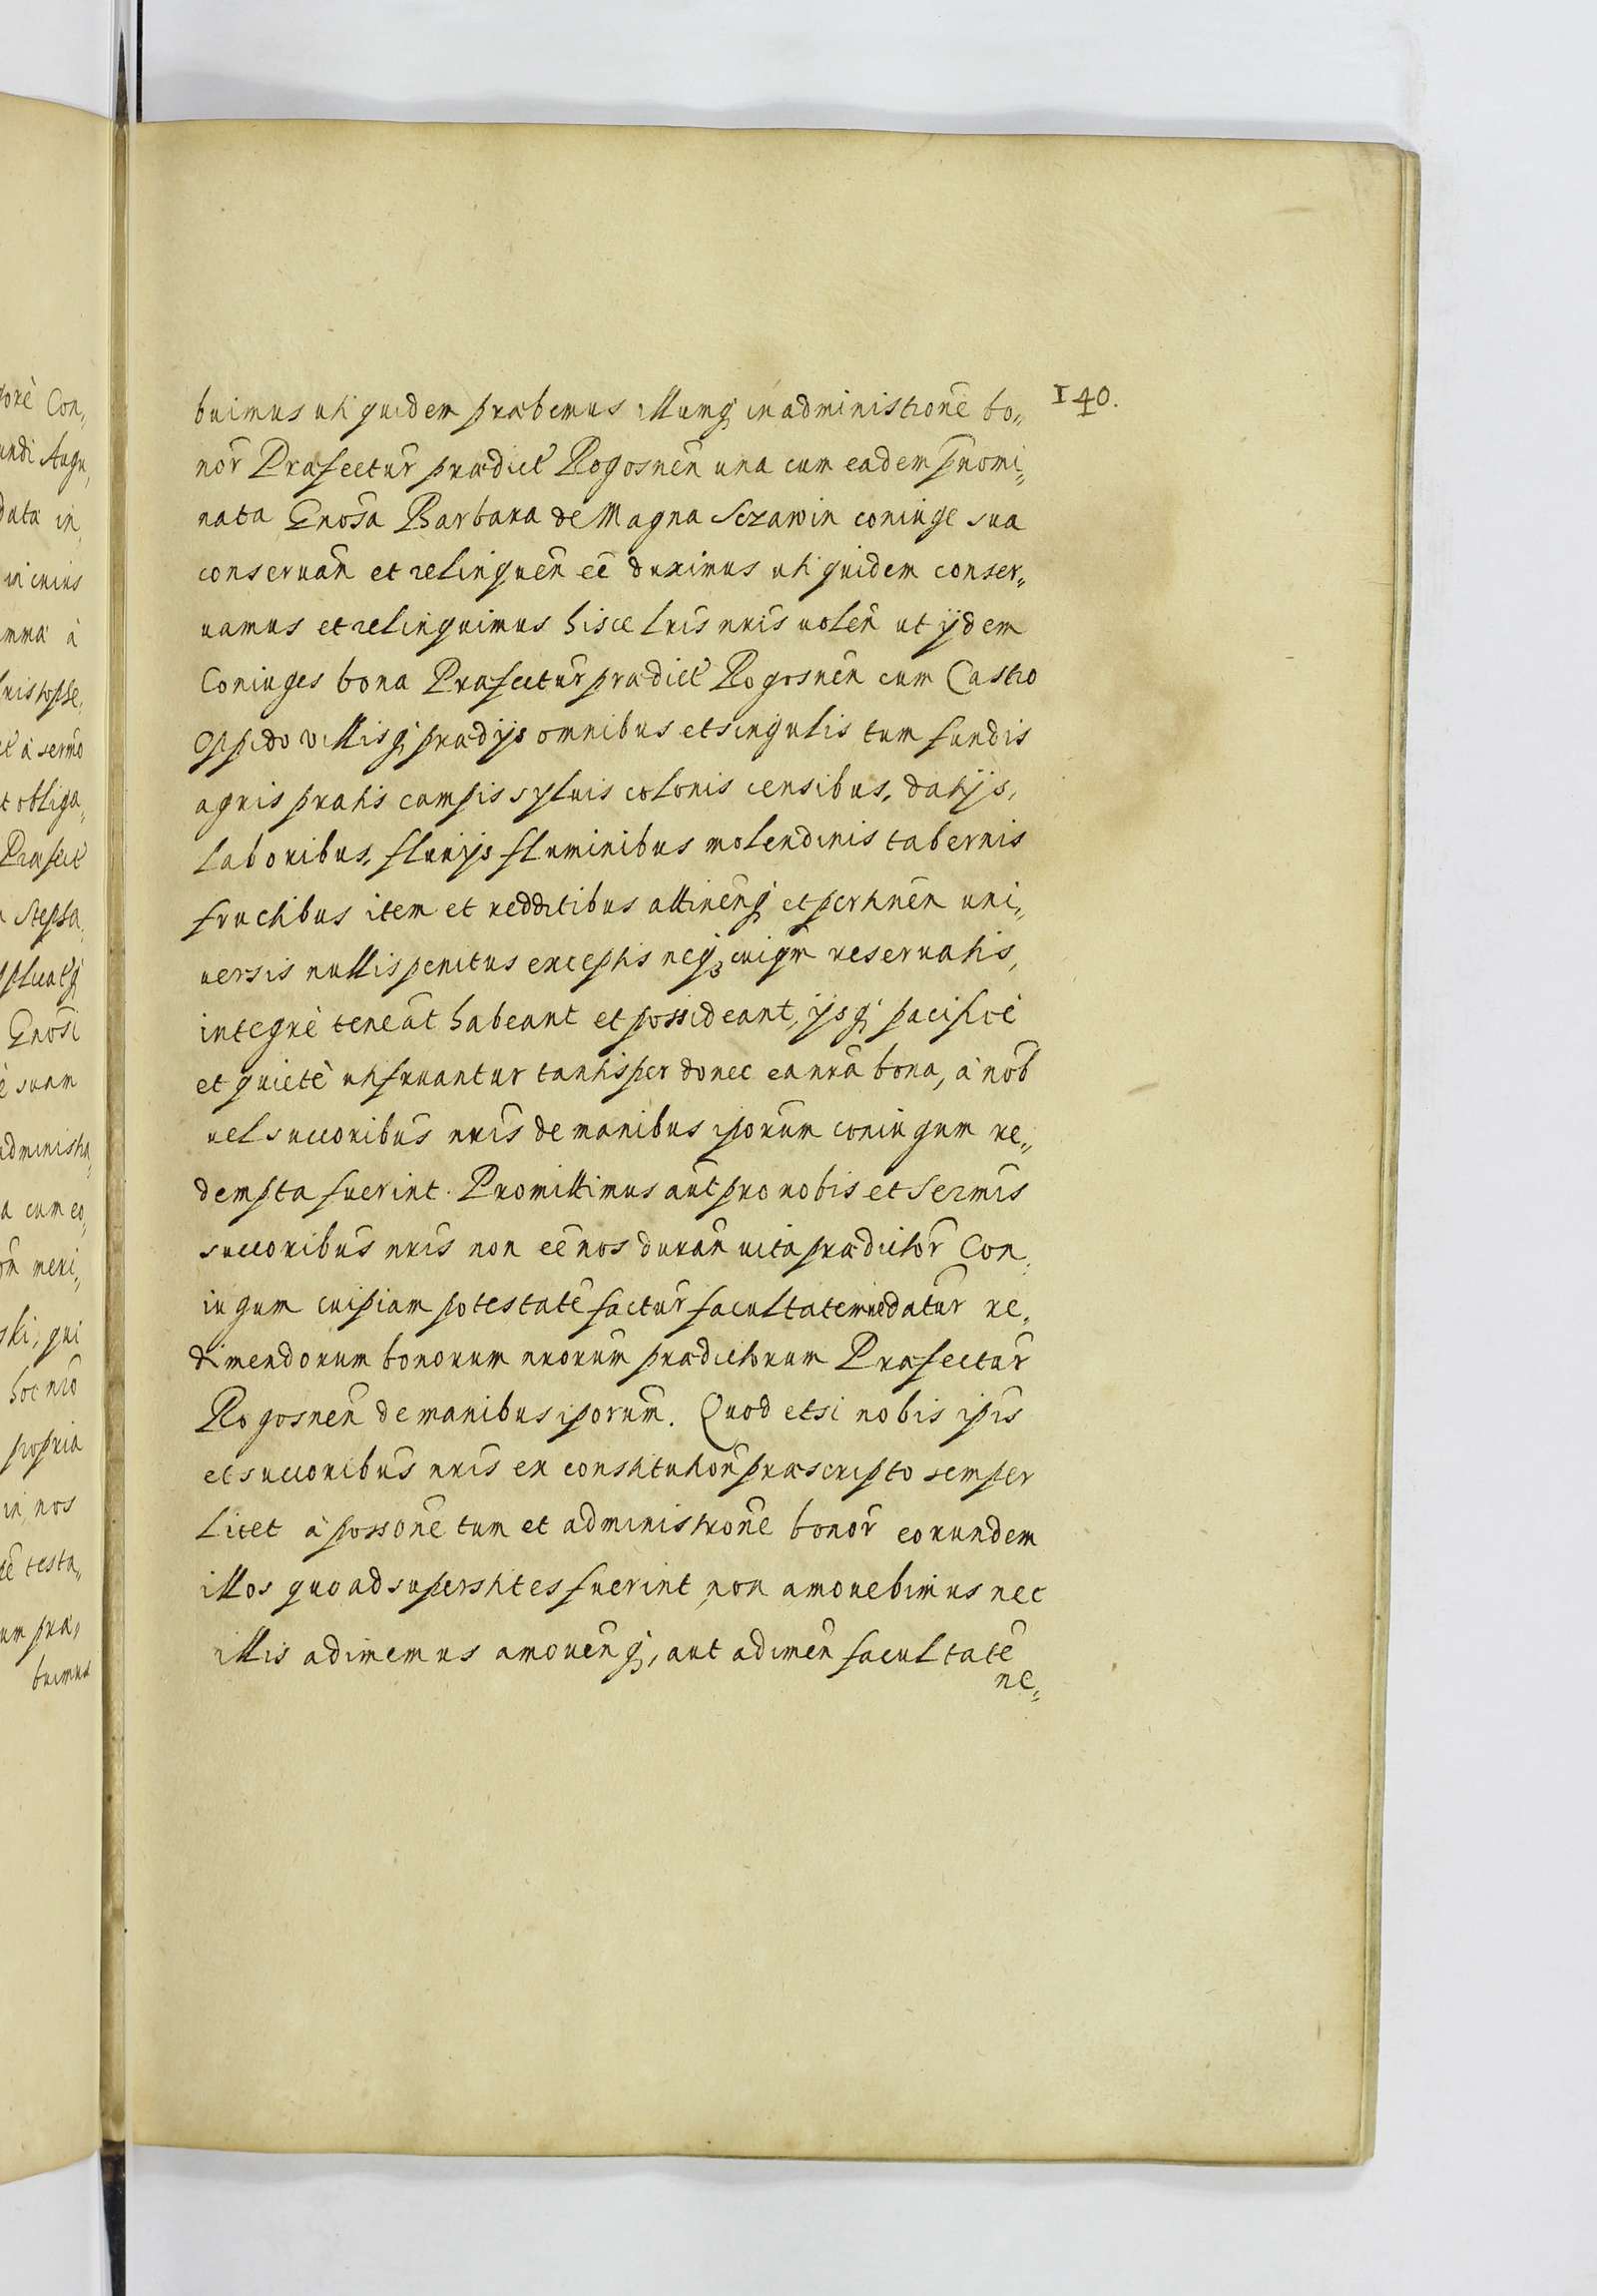 140.
buimus uti quidem præbemus illumq; in administrõne bo„
nor̃ Præfectur̃ prædict̃ Rogosneñ una cum eadem p̃nomi„
nata Gnosã Barbara de Magna Sczawin coniuge sua
conseruañ et relinqueñ eẽ duximus uti quidem conser„
uamus et relinquimus hisce lr̃is nr̃is uoleñ ut ijdem
Coniuges bona Præfectur̃ prædict̃ Rogosneñ cum Castro
Oppido villisq; prædijs omnibus et singulis tum fundis
agris pratis campis syluis colonis censibus, datijs,
laboribus, fluuijs fluminibus molendinis tabernis
fructibus item et redditibus attineñq; et pertineñ uni„
uersis nullis penitus exceptis neq; cuiqm̃ reseruatis,
integrè teneãt habeant et possideant, ijsq; pacificè
et quietè utifruantur tantisper donec ea nr̃a bona, à nob̃
uel succoribũs nr̃is de manibus ip̃orum coniugum re„
dempta fuerint. Promittimus aũt pro nobis et Sermĩs
succoribũs nr̃is non eẽ nos durañ uita prædictor̃ Con„
iugum cuipiam potestatẽ factur̃ facultatemue datur̃ re„
dimendorum bonorum nr̃orum prædictorum Præfectur̃
Rogosneñ de manibus ip̃orum. Quod etsi nobis ip̃is
et succoribũs nr̃is ex constitution̄ præscripto semper
licet à possonẽ tum et administrõne bonor̃ eorundem
illos quoad superstites fuerint non amouebimus nec
illis adimemus amoueñq;, aut adimeñ facultatẽ
ne„